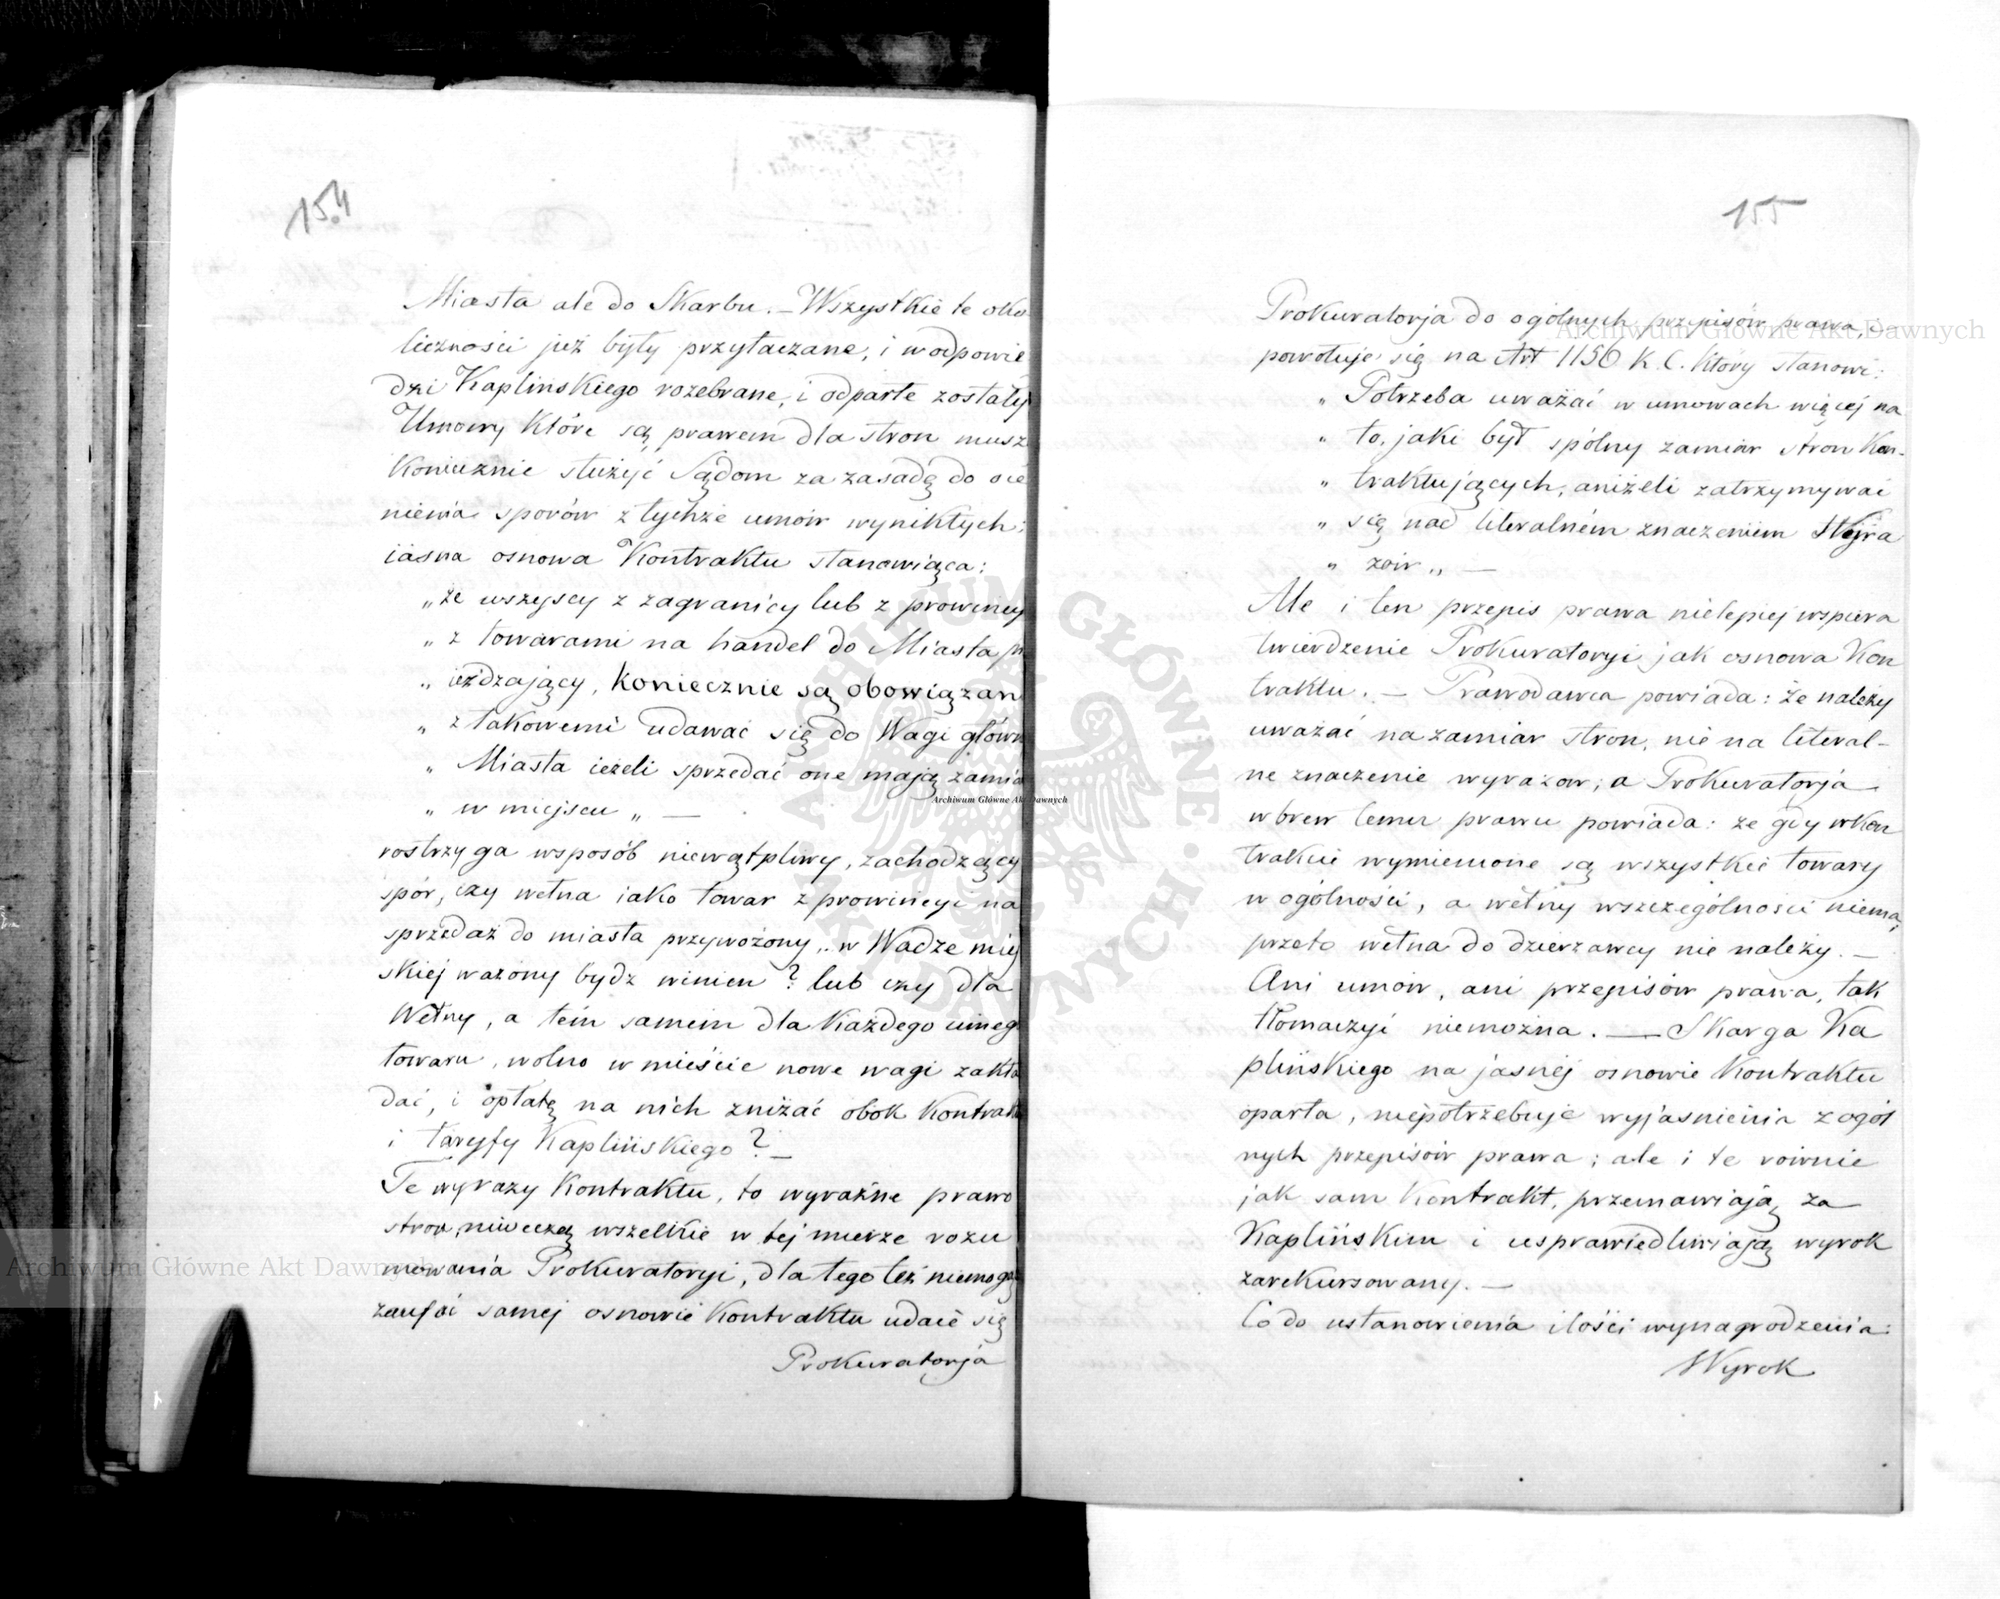 154
Miasta ale do Skarbu. – Wszystkie te oko
liczności już były przytaczane, i w odpowie
dzi Kaplińskiego rozebrane, i odparte zostały
Umowy które są prawem dla stron musz
koniecznie służyć Sądom za zasadę do oce
nienia sporów z tychże umów wynikłych:
iasna osnowa Kontraktu stanowiąca:
„ że wszyscy z zagranicy lub z prowincy
„ z towarami na handel do Miasta pr
„ ieżdzający, koniecznie są obowiązan
„ z takowemi udawać się do Wagi główn
„ Miasta ieżeli sprzedać one mają zamia
„ w miejscu „ —
rostrzyga wsposób niewątpliwy, zachodzący
spór, czy wełna iako towar z prowincyi na
sprzedaż do miasta przywożony, w Wadze miej
skiej ważony bydz winien? lub czy dla
Wełny, a tem samem dla każdego inneg
towaru, wolno w mieście nowe wagi zakła
dać, i opłatę na nich zniżać obok Kontrak
i taryfy Kaplińskiego? —
Te wyrazy Kontraktu, to wyraźne prawo
stron, niweczą wszelkie w tej mierze rozu
mowania Prokuratoryi, dla tego też niemogąc
zaufać samej osnowie Kontraktu udaie się
Prokuratorja
155
Prokuratorja do ogólnych przepisów prawa, i
powołuje się na Art 1156 K.C. który stanowi:
„ Potrzeba uważać w umowach więcej na
„ to, jaki był spólny zamiar stron kon-
„ traktujących, aniżeli zatrzymywać
„ się nad literalném znaczeniem Wyra
„ zów „ —
Ale i ten przepis prawa nielepiej wspiera
twierdzenie Prokuratoryi jak osnowa Kon
traktu. — Prawodawca powiada: że należy
uważać na zamiar stron, nie na literal-
ne znaczenie wyrazów; a Prokuratorja
wbrew temu prawu powiada: że gdy w Kon
trakcie wymienione są wszystkie towary
w ogólności, a wełny wszczególności niema,
przeto wełna do dzierzawcy nie należy. —
Ani umów, ani przepisów prawa, tak
tłomaczyć niemożna. — Skarga Ka
plińskiego na jasnéj osnowie Kontraktu
oparta, niepotrzebuje wyjaśnienia z ogól
nych przepisów prawa; ale i te równie
jak sam Kontrakt, przemawiają za
Kaplińskim i usprawiedliwiają wyrok
zarekursowany. —
Co do ustanowienia ilości wynagrodzenia:
Wyrok
Archiwum Główne Akt Dawnych
Archiwum Główne Akt Dawnych
Archiwum Główne Akt Dawnych
ARCHIWUM GŁÓWNE AKT DAWNYCH